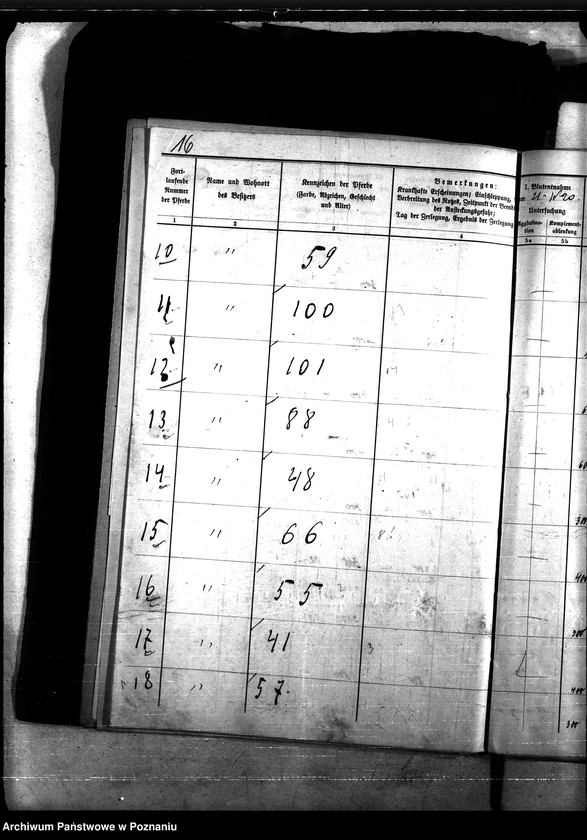 16
Fort-
laufende
Nummer
der Pferde
Name und Wohnort
des Besitzers
Kennzeichen der Pferde
(Farbe, Abzeichen, Geschlecht
und Alter)
Bemerkungen:
Krankhafte Erscheinungen; Einschleppung,
Verbreitung des Rotzes, Zeitpunkt der
der Ansteckungsgefahr;
Tag der Zerlegung, Ergebnis der Zerlegung
1. Blutentnahme
Untersuchung
Komplement-
ablenkung
1 2 3 4 5a 5b
10 " 59
11 " 100
12 " 101
13 " 88
14 " 48
15 " 66
16 " 55
17 " 41
18 " 57
Archiwum Państwowe w Poznaniu